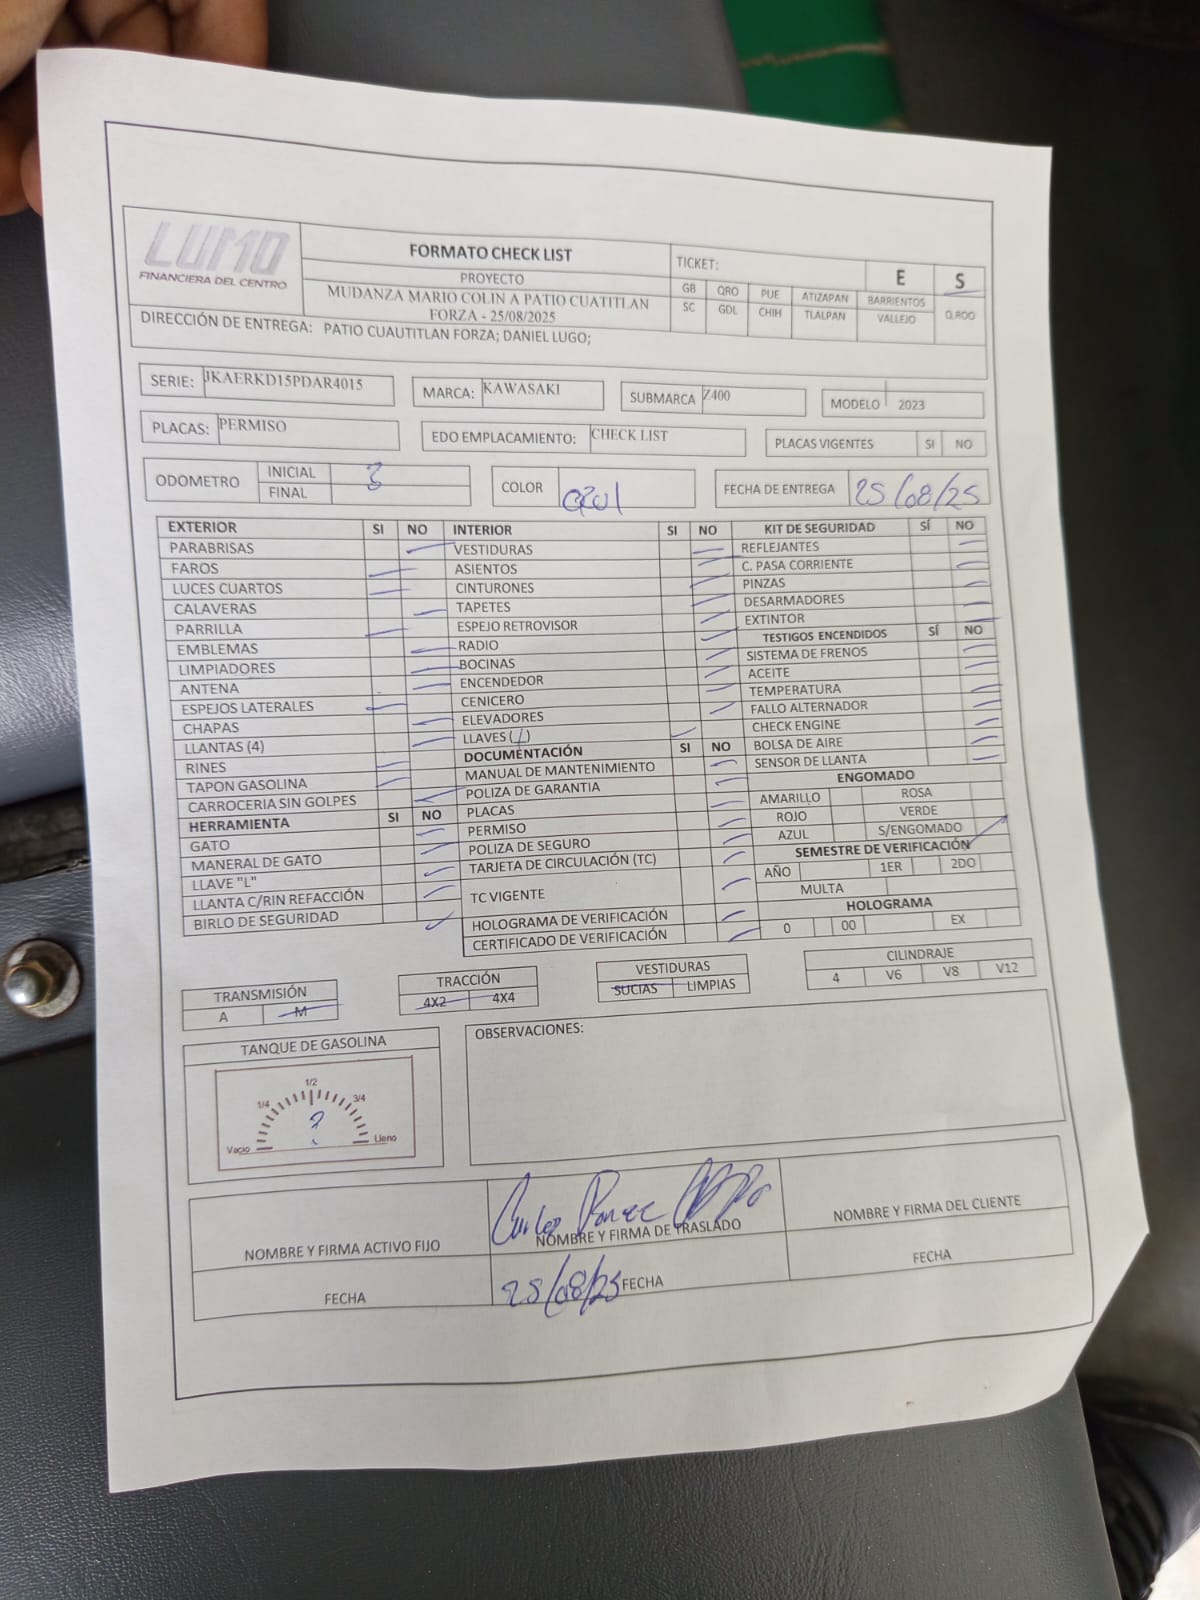 LUMO
FINANCIERA DEL CENTRO
FORMATO CHECK LIST
PROYECTO
MUDANZA MARIO COLIN A PATIO CUATITLAN
FORZA - 25/08/2025
TICKET: E S
GB QRO PUE ATIZAPAN BARRIENTOS Q.ROO
SC GDL CHIH TLALPAN VALLEJO
DIRECCIÓN DE ENTREGA: PATIO CUAUTITLAN FORZA; DANIEL LUGO;
SERIE: JKAERKD15PDAR4015 MARCA: KAWASAKI SUBMARCA Z400 MODELO 2023
PLACAS: PERMISO EDO EMPLACAMIENTO: CHECK LIST PLACAS VIGENTES SI NO
ODOMETRO INICIAL 3 COLOR azul FECHA DE ENTREGA 25/08/25
FINAL
EXTERIOR SI NO
PARABRISAS
FAROS
LUCES CUARTOS
CALAVERAS
PARRILLA
EMBLEMAS
LIMPIADORES
ANTENA
ESPEJOS LATERALES
CHAPAS
LLANTAS (4)
RINES
TAPON GASOLINA
CARROCERIA SIN GOLPES
HERRAMIENTA SI NO
GATO
MANERAL DE GATO
LLAVE "L"
LLANTA C/RIN REFACCIÓN
BIRLO DE SEGURIDAD
INTERIOR SI NO
VESTIDURAS
ASIENTOS
CINTURONES
TAPETES
ESPEJO RETROVISOR
RADIO
BOCINAS
ENCENDEDOR
CENICERO
ELEVADORES
LLAVES (1)
DOCUMENTACIÓN SI NO
MANUAL DE MANTENIMIENTO
POLIZA DE GARANTIA
PLACAS
PERMISO
POLIZA DE SEGURO
TARJETA DE CIRCULACIÓN (TC)
TC VIGENTE
HOLOGRAMA DE VERIFICACIÓN
CERTIFICADO DE VERIFICACIÓN
KIT DE SEGURIDAD SÍ NO
REFLEJANTES
C. PASA CORRIENTE
PINZAS
DESARMADORES
EXTINTOR
TESTIGOS ENCENDIDOS SÍ NO
SISTEMA DE FRENOS
ACEITE
TEMPERATURA
FALLO ALTERNADOR
CHECK ENGINE
BOLSA DE AIRE
SENSOR DE LLANTA
ENGOMADO
AMARILLO ROSA
ROJO VERDE
AZUL S/ENGOMADO
SEMESTRE DE VERIFICACIÓN
AÑO 1ER 2DO
MULTA
HOLOGRAMA
0 00 EX
TRANSMISIÓN
A M
TRACCIÓN
4X2 4X4
VESTIDURAS
SUCIAS LIMPIAS
CILINDRAJE
4 V6 V8 V12
TANQUE DE GASOLINA
1/2
1/4 3/4
?
Vacio Lleno
OBSERVACIONES:
NOMBRE Y FIRMA ACTIVO FIJO
FECHA
Carlos Ponce
NOMBRE Y FIRMA DE TRASLADO
25/08/25 FECHA
NOMBRE Y FIRMA DEL CLIENTE
FECHA